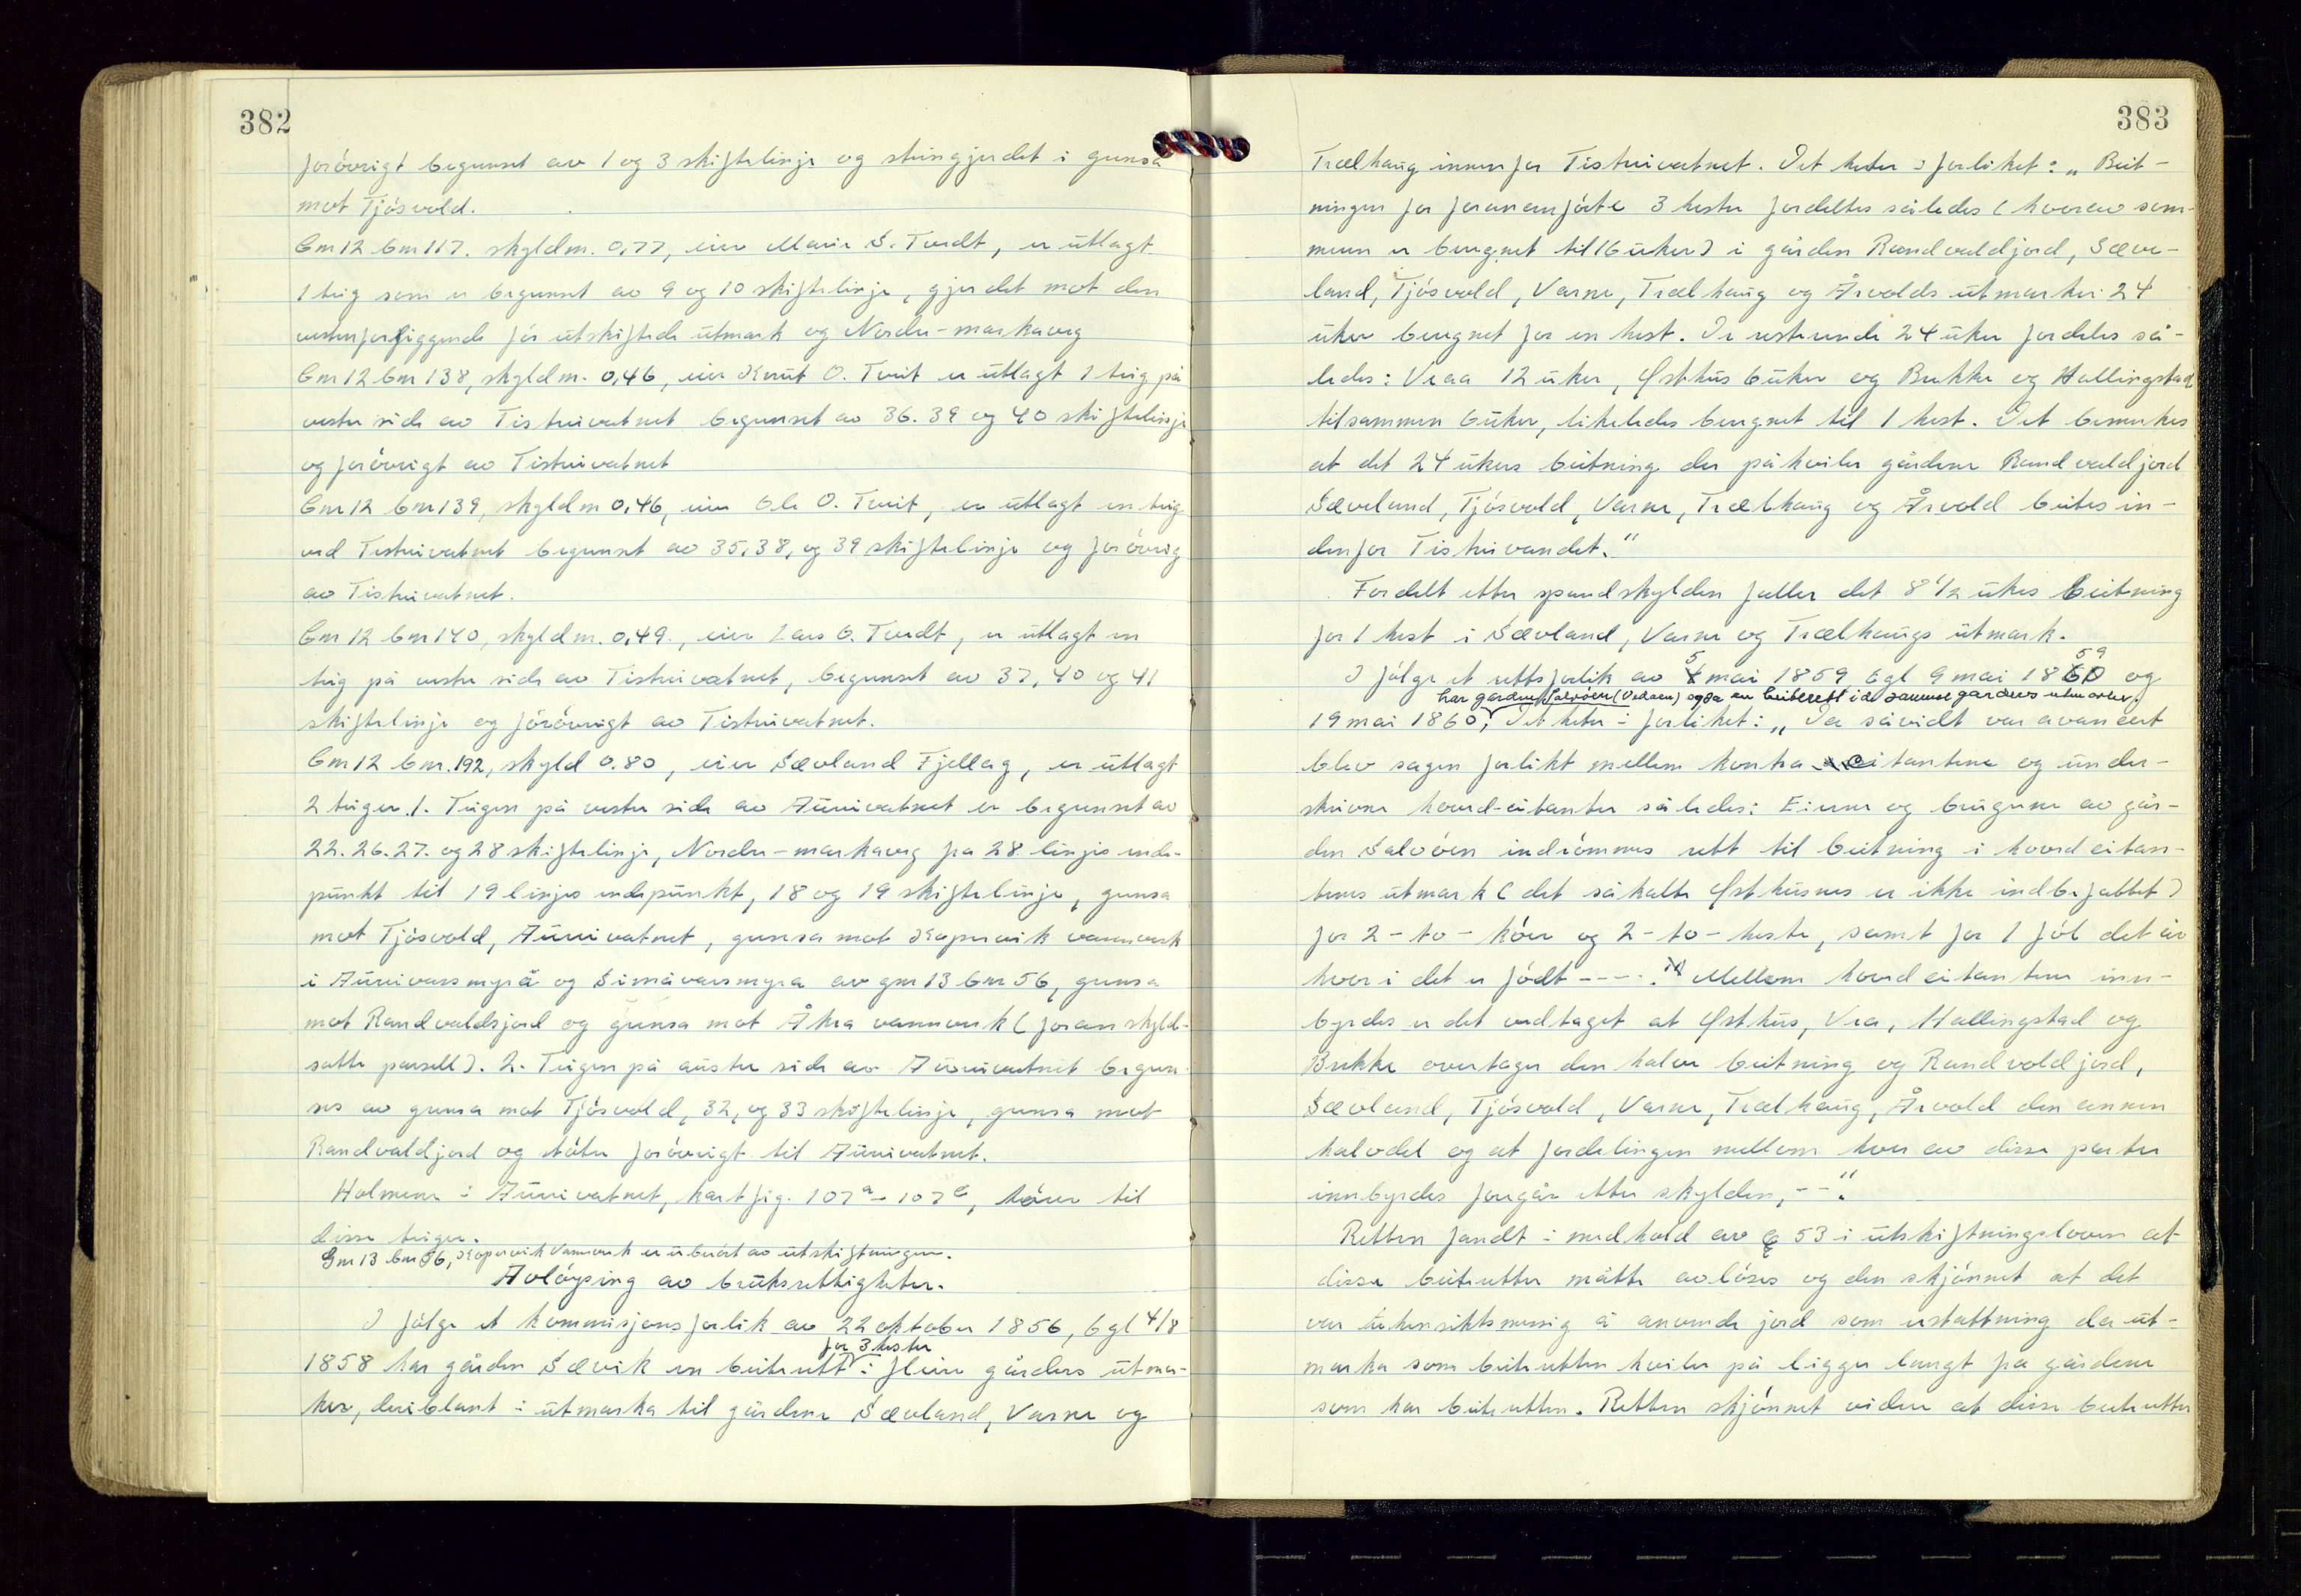 382
forøvrigt begrenset av 1 og 3 skiftelinje og steingjerdet i grensa
mot Tjøsvold.
Gnr 12 bnr 117. skyldm. 0,77, eier Marie S. Tvedt, er utlagt
1 teig som er begrenset av 9 og 10 skiftelinje, gjerdet mot den
vestenforliggende før utskiftede utmark og Nordre-markaveg
Gnr 12 bnr 138, skyldm. 0,46, eier Knut O. Tveit er utlagt 1 teig på
vestre side av Tistreivatnet begrenset av 36. 39 og 40 skiftelinje
og forøvrigt av Tistreivatnet
Gnr 12 bnr 139, skyldm 0,46, eier Ole O. Tveit, er utlagt en teig
ved Tistreivatnet begrenset av 35, 38, og 39 skiftelinje og forøvrig
av Tistreivatnet.
Gnr 12 bnr 140, skyldm. 0,49., eier Lars O. Tvedt, er utlagt en
teig på vestre side av Tistreivatnet, begrenset av 37, 40 og 41
skiftelinje og forøvrigt av Tistreivatnet.
Gnr 12 bnr. 192, skyld 0.80, eier Sævland Fjellag, er utlagt
2 teiger. 1. Teigen på vestre side av Fünivatnet er begrenset av
22. 26. 27. og 28 skiftelinje, Nordre-markaveg fra 28. linjes ende-
punkt til 19 linjes endepunkt, 18 og 19 skiftelinje, grensa
mot Tjøsvold, grensa mot Kopervik vannverk
i og Simåvarsmyra av gnr 13 bnr 56, grensa
mot Randvaldsjord og grensa mot Åkra vannverk (foran skyld-
satte parsell). 2. Teigen på austre side av begren-
ses av grensa mot Tjøsvold, 32, og 33 skiftelinje, grensa mot
Randvaldjord og støter forøvrigt til
Holmene i kartfig. 107a - 107e, hører til
disse teiger.
Gnr 13 bnr 56, Kopervik Vannverk er uberørt av utskiftningen.
Avløysing av bruksrettigheter.
I følge et kommisjonsforlik av 22 oktober 1856, tgl 4/8
for 3 hester
1858 har gården Sævik en beiterett i fleire gårders utmar-
ker, deriblant i utmarka til gårdene Sævland, Varne og
383
Trælhaug innenfor Tistreivatnet. Det heter i forliket: „Beit-
ningen for forananførte 3 hester fordeltes således (hvorav som-
meren er beregnet til 16 uker) i gården Randvaldjord, Sæve-
land, Tjøsvold, Varne, Trælhaug og Årvolds utmarker 24
uker beregnet for en hest. De resterende 24 uker fordeles så-
ledes: Vraa 12 uker, Østhus 6 uker og Bukke og Hallingstad
tilsammen 6 uker, likeledes beregnet til 1 hest. Det bemerkes
at det 24 ukers beitning der påhviler gårdene Randvaldjord
Sæveland, Tjøsvold, Varne, Trælhaug og Årvold beites in-
denfor Tistreivandet."
Fordelt etter spandskylden faller det 8 1/2 ukes beitning
for 1 hest i Sævland, Varne og Trælhaugs utmark.
I følge et rettsforlik av 5 mai 1859, tgl 9 mai 1859 og
har gården Salvøen (Vedøen) også en beiterett i de samme garders utmarker.
19 mai 1860, Det heter i forliket: „Da såvidt var avancert
blev sagen forlikt mellem kontracitantene og under-
skrivne hovedcitanter således: Eierne og brugerne av går-
den Salvøen indrømmes rett til beitning i hovedcitan-
tenes utmark (det såkalte Østhusnes er ikke indbefattet)
for 2 - to - kør og 2 - to - heste, samt for 1 føl det år
hvori det er født ---- ." Mellem hovedcitantene inn-
byrdes er det vedtaget at Østhus, Vra, Hallingstad og
Bukke overtager den halve beitning og Randvoldjord,
Sævland, Tjøsvold, Varne, Trælhaug, Årvold den annen
halvdel og at fordelingen mellem hver av disse parter
innbyrdes foregår etter skylden, --".
Retten fandt i medhold av § 53 i utskiftningsloven at
disse beiteretter måtte avløses og den skjønnet at det
var uhensiktsmessig å anvende jord som erstattning da ut-
marka som beiteretten hviler på ligger langt fra gårdene
som har beiteretten. Retten skjønnet videre at disse beiteretter